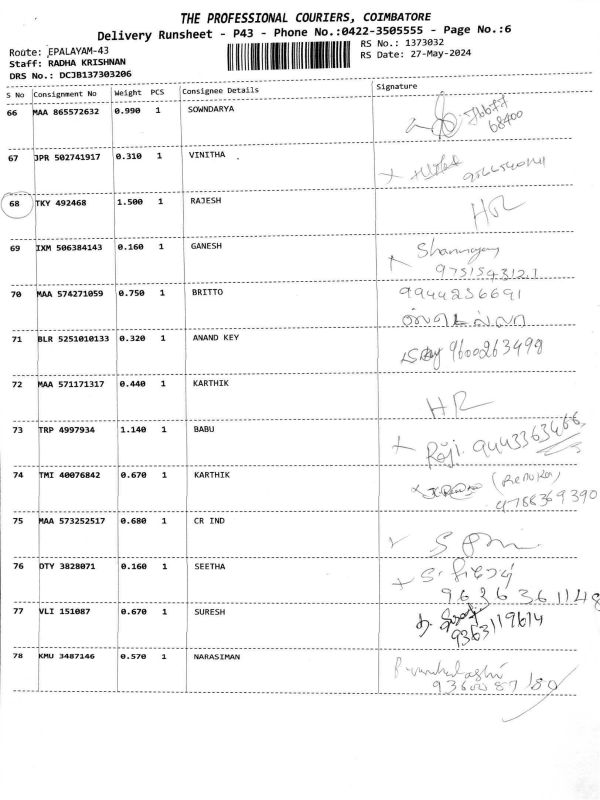 THE PROFESSIONAL COURIERS, COIMBATORE
Delivery Runsheet - P43 - Phone No.:0422-3505555 - Page No.:6
Route: EPALAYAM-43
RS No.: 1373032
Staff: RADHA KRISHNAN
RS Date: 27-May-2024
DRS No.: DCJB137303206
S No Consignment No Weight PCS Consignee Details Signature
66 MAA 865572632 0.990 1 SOWNDARYA
68400
67 JPR 502741917 0.310 1 VINITHA
68 TKY 492468 1.500 1 RAJESH HR
69 IXM 506384143 0.160 1 GANESH
9751543121
70 MAA 574271059 0.750 1 BRITTO 9944236691
71 BLR 5251010133 0.320 1 ANAND KEY 9600263498
72 MAA 571171317 0.440 1 KARTHIK HR
73 TRP 4997934 1.140 1 BABU Roji. 9443363466
74 TMI 40076842 0.670 1 KARTHIK (Renuka)
9788369390
75 MAA 573252517 0.680 1 CR IND
76 DTY 3828071 0.160 1 SEETHA
9626361148
77 VLI 151087 0.670 1 SURESH
9363119614
78 KMU 3487146 0.570 1 NARASIMAN